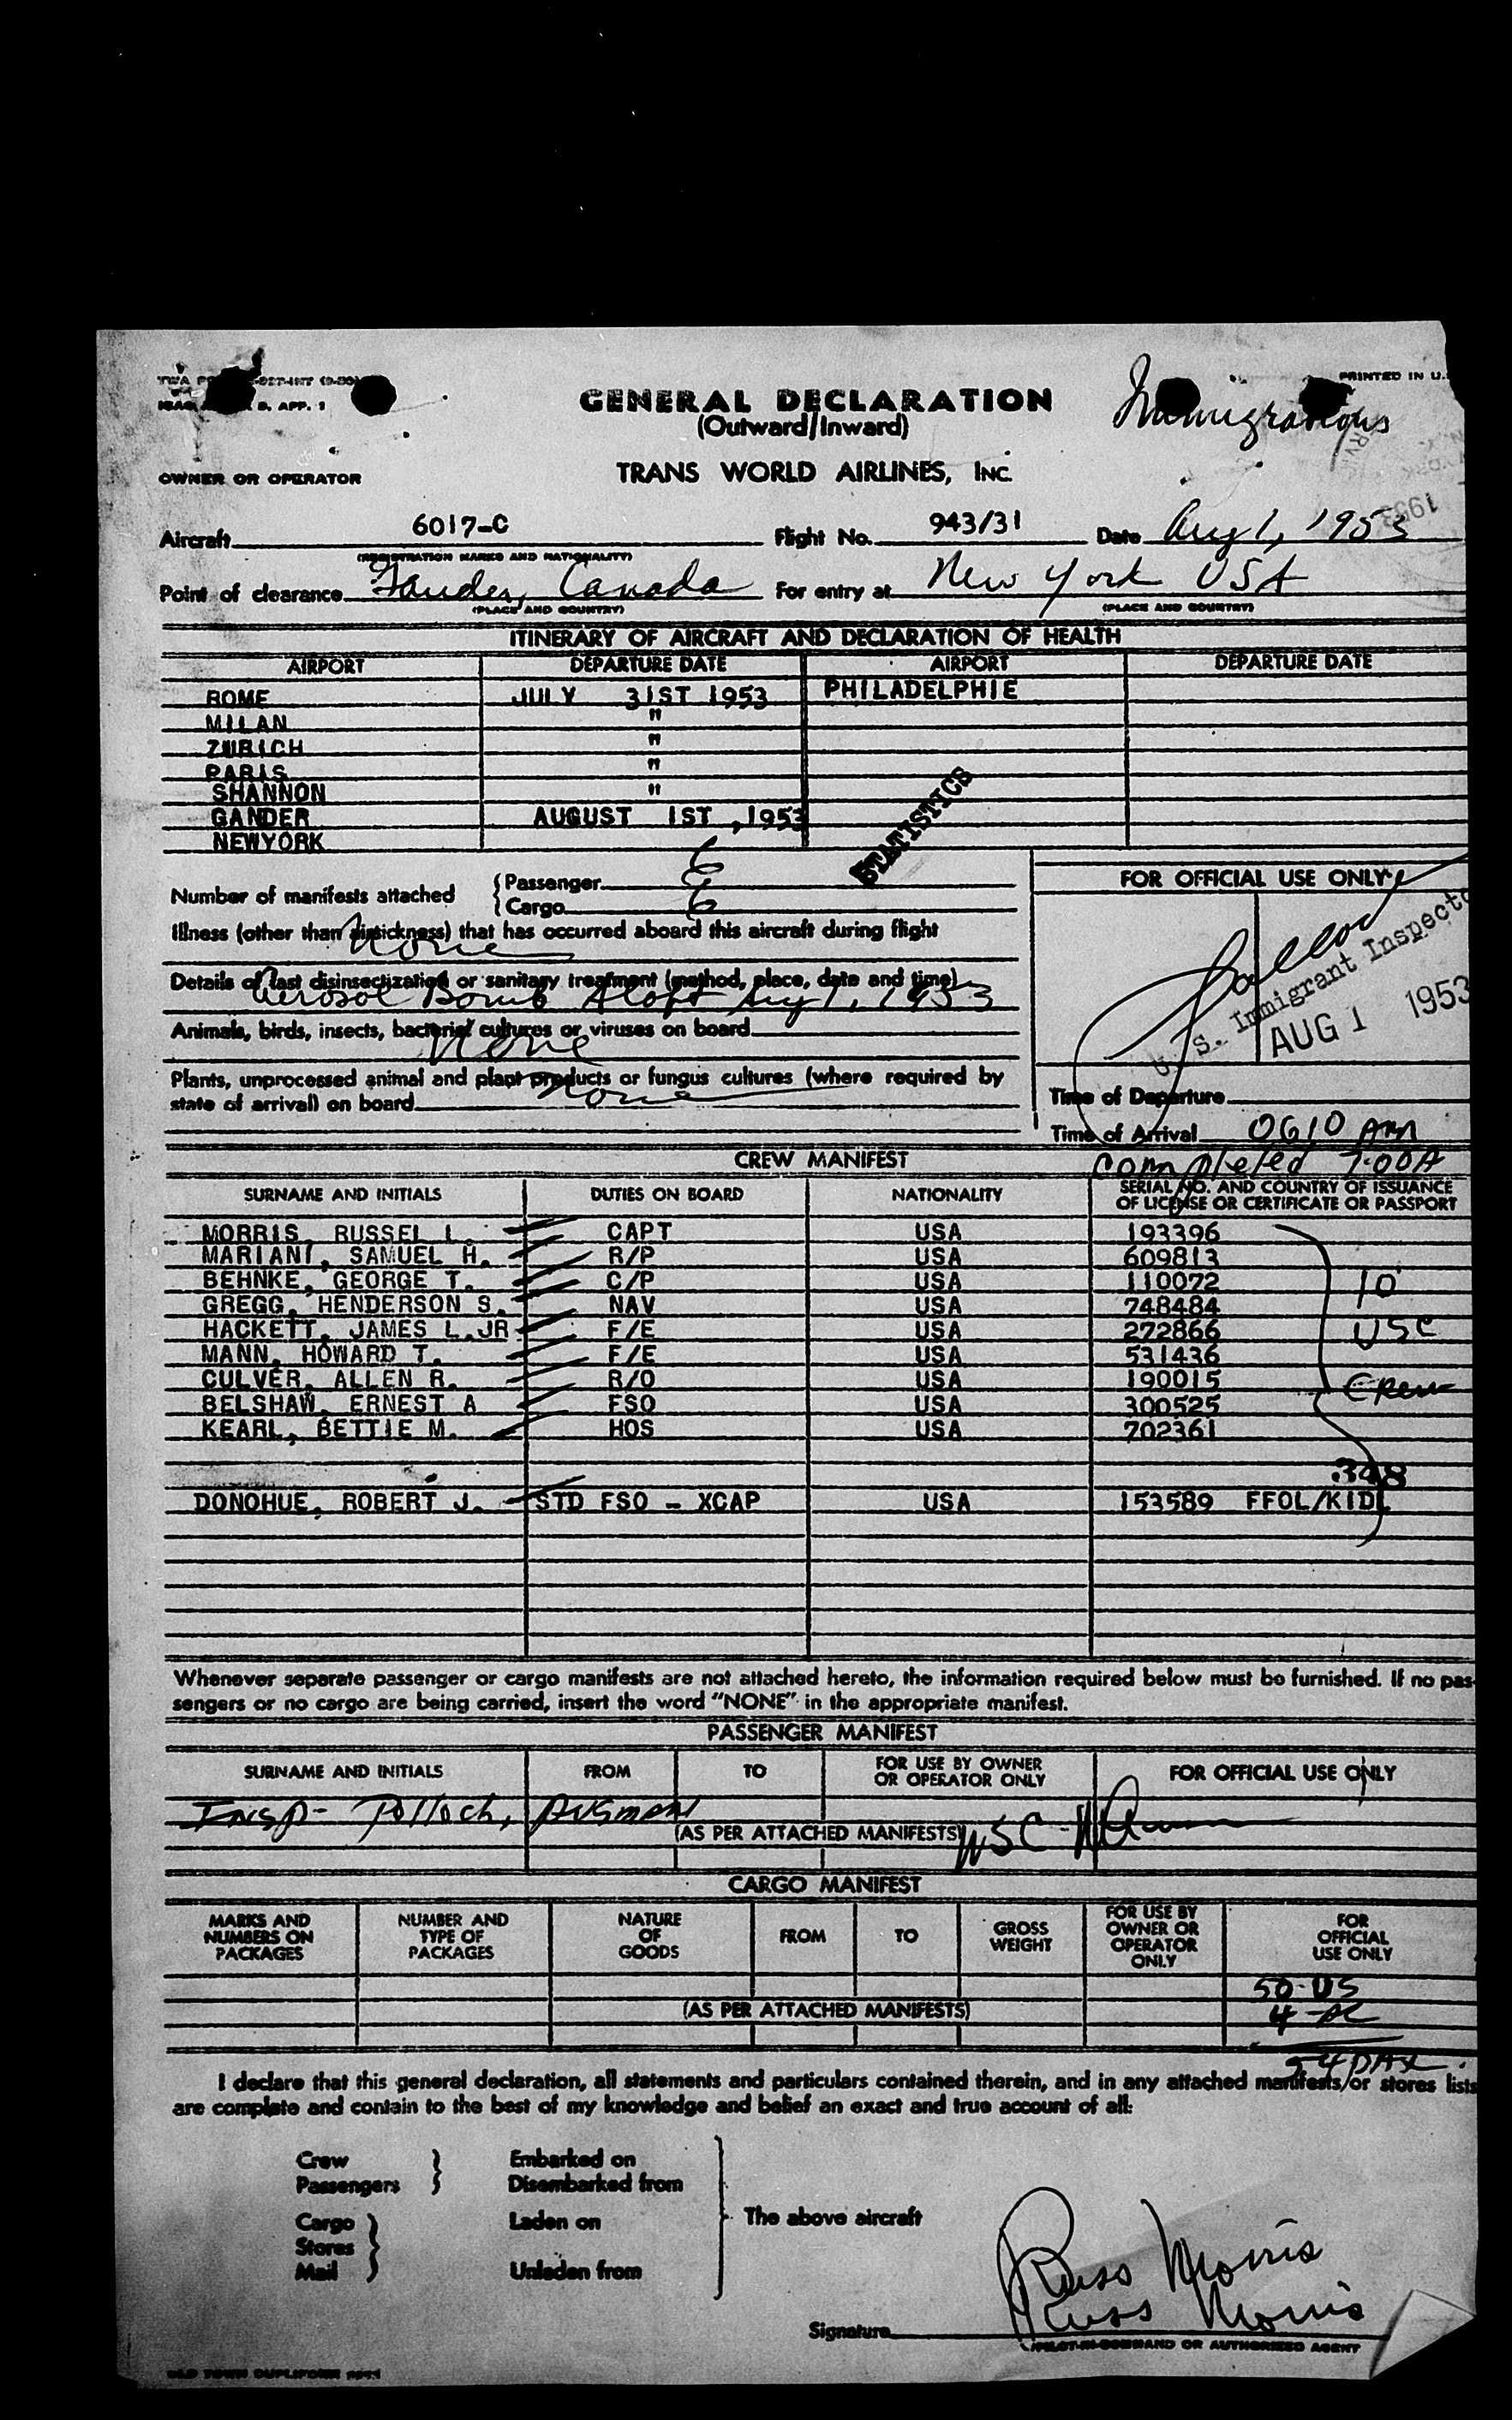 PRINTED IN U.S.
APP. 1
GENERAL DECLARATION
(Outward/Inward)
Immigrations
OWNER OR OPERATOR
TRANS WORLD AIRLINES, INC.
1953
Aircraft 6017-C Flight No. 943/31 Date Aug 1, 1953
(REGISTRATION MARKS AND NATIONALITY)
Point of clearance Gander, Canada For entry at New York USA
(PLACE AND COUNTRY) (PLACE AND COUNTRY)
ITINERARY OF AIRCRAFT AND DECLARATION OF HEALTH
AIRPORT DEPARTURE DATE AIRPORT DEPARTURE DATE
ROME JULY 31ST 1953 PHILADELPHIE
MILAN "
ZURICH "
PARIS "
SHANNON "
GANDER AUGUST 1ST ,1953
NEWYORK
STATISTICS
Number of manifests attached { Passenger 6
{ Cargo 6
FOR OFFICIAL USE ONLY
Illness (other than airsickness) that has occurred aboard this aircraft during flight
None
Details of last disinsectization or sanitary treatment (method, place, date and time)
Aerosol Bomb Aloft Aug 1, 1953
U. S. Immigrant Inspector
AUG 1 1953
Animals, birds, insects, bacterial cultures or viruses on board
None
Plants, unprocessed animal and plant products or fungus cultures (where required by
state of arrival) on board None
Time of Departure
Time of Arrival 0610 AM
completed 7:00A
CREW MANIFEST
SURNAME AND INITIALS DUTIES ON BOARD NATIONALITY SERIAL NO. AND COUNTRY OF ISSUANCE
OF LICENSE OR CERTIFICATE OR PASSPORT
MORRIS, RUSSEL L. CAPT USA 193396
MARIANI, SAMUEL H. R/P USA 609813
BEHNKE, GEORGE T. C/P USA 110072 10
GREGG, HENDERSON S. NAV USA 748484
HACKETT, JAMES L.JR F/E USA 272866 USC
MANN, HOWARD T. F/E USA 531436
CULVER, ALLEN R. R/O USA 190015 Crew
BELSHAW, ERNEST A FSO USA 300525
KEARL, BETTIE M. HOS USA 702361
348
DONOHUE, ROBERT J. STD FSO - XCAP USA 153589 FFOL/KIDL
Whenever separate passenger or cargo manifests are not attached hereto, the information required below must be furnished. If no pas-
sengers or no cargo are being carried, insert the word "NONE" in the appropriate manifest.
PASSENGER MANIFEST
SURNAME AND INITIALS FROM TO FOR USE BY OWNER
OR OPERATOR ONLY FOR OFFICIAL USE ONLY
Insp-
(AS PER ATTACHED MANIFESTS)
CARGO MANIFEST
MARKS AND
NUMBERS ON
PACKAGES
NUMBER AND
TYPE OF
PACKAGES
NATURE
OF
GOODS
FROM TO GROSS
WEIGHT
FOR USE BY
OWNER OR
OPERATOR
ONLY
FOR
OFFICIAL
USE ONLY
50-US
(AS PER ATTACHED MANIFESTS) 4
54 PAX.
I declare that this general declaration, all statements and particulars contained therein, and in any attached manifests/or stores lists
are complete and contain to the best of my knowledge and belief an exact and true account of all:
Crew } Embarked on
Passengers } Disembarked from
Cargo } Laden on The above aircraft
Stores
Mail } Unladen from
Russ Morris
Signature Russ Morris
(PILOT-IN-COMMAND OR AUTHORIZED AGENT